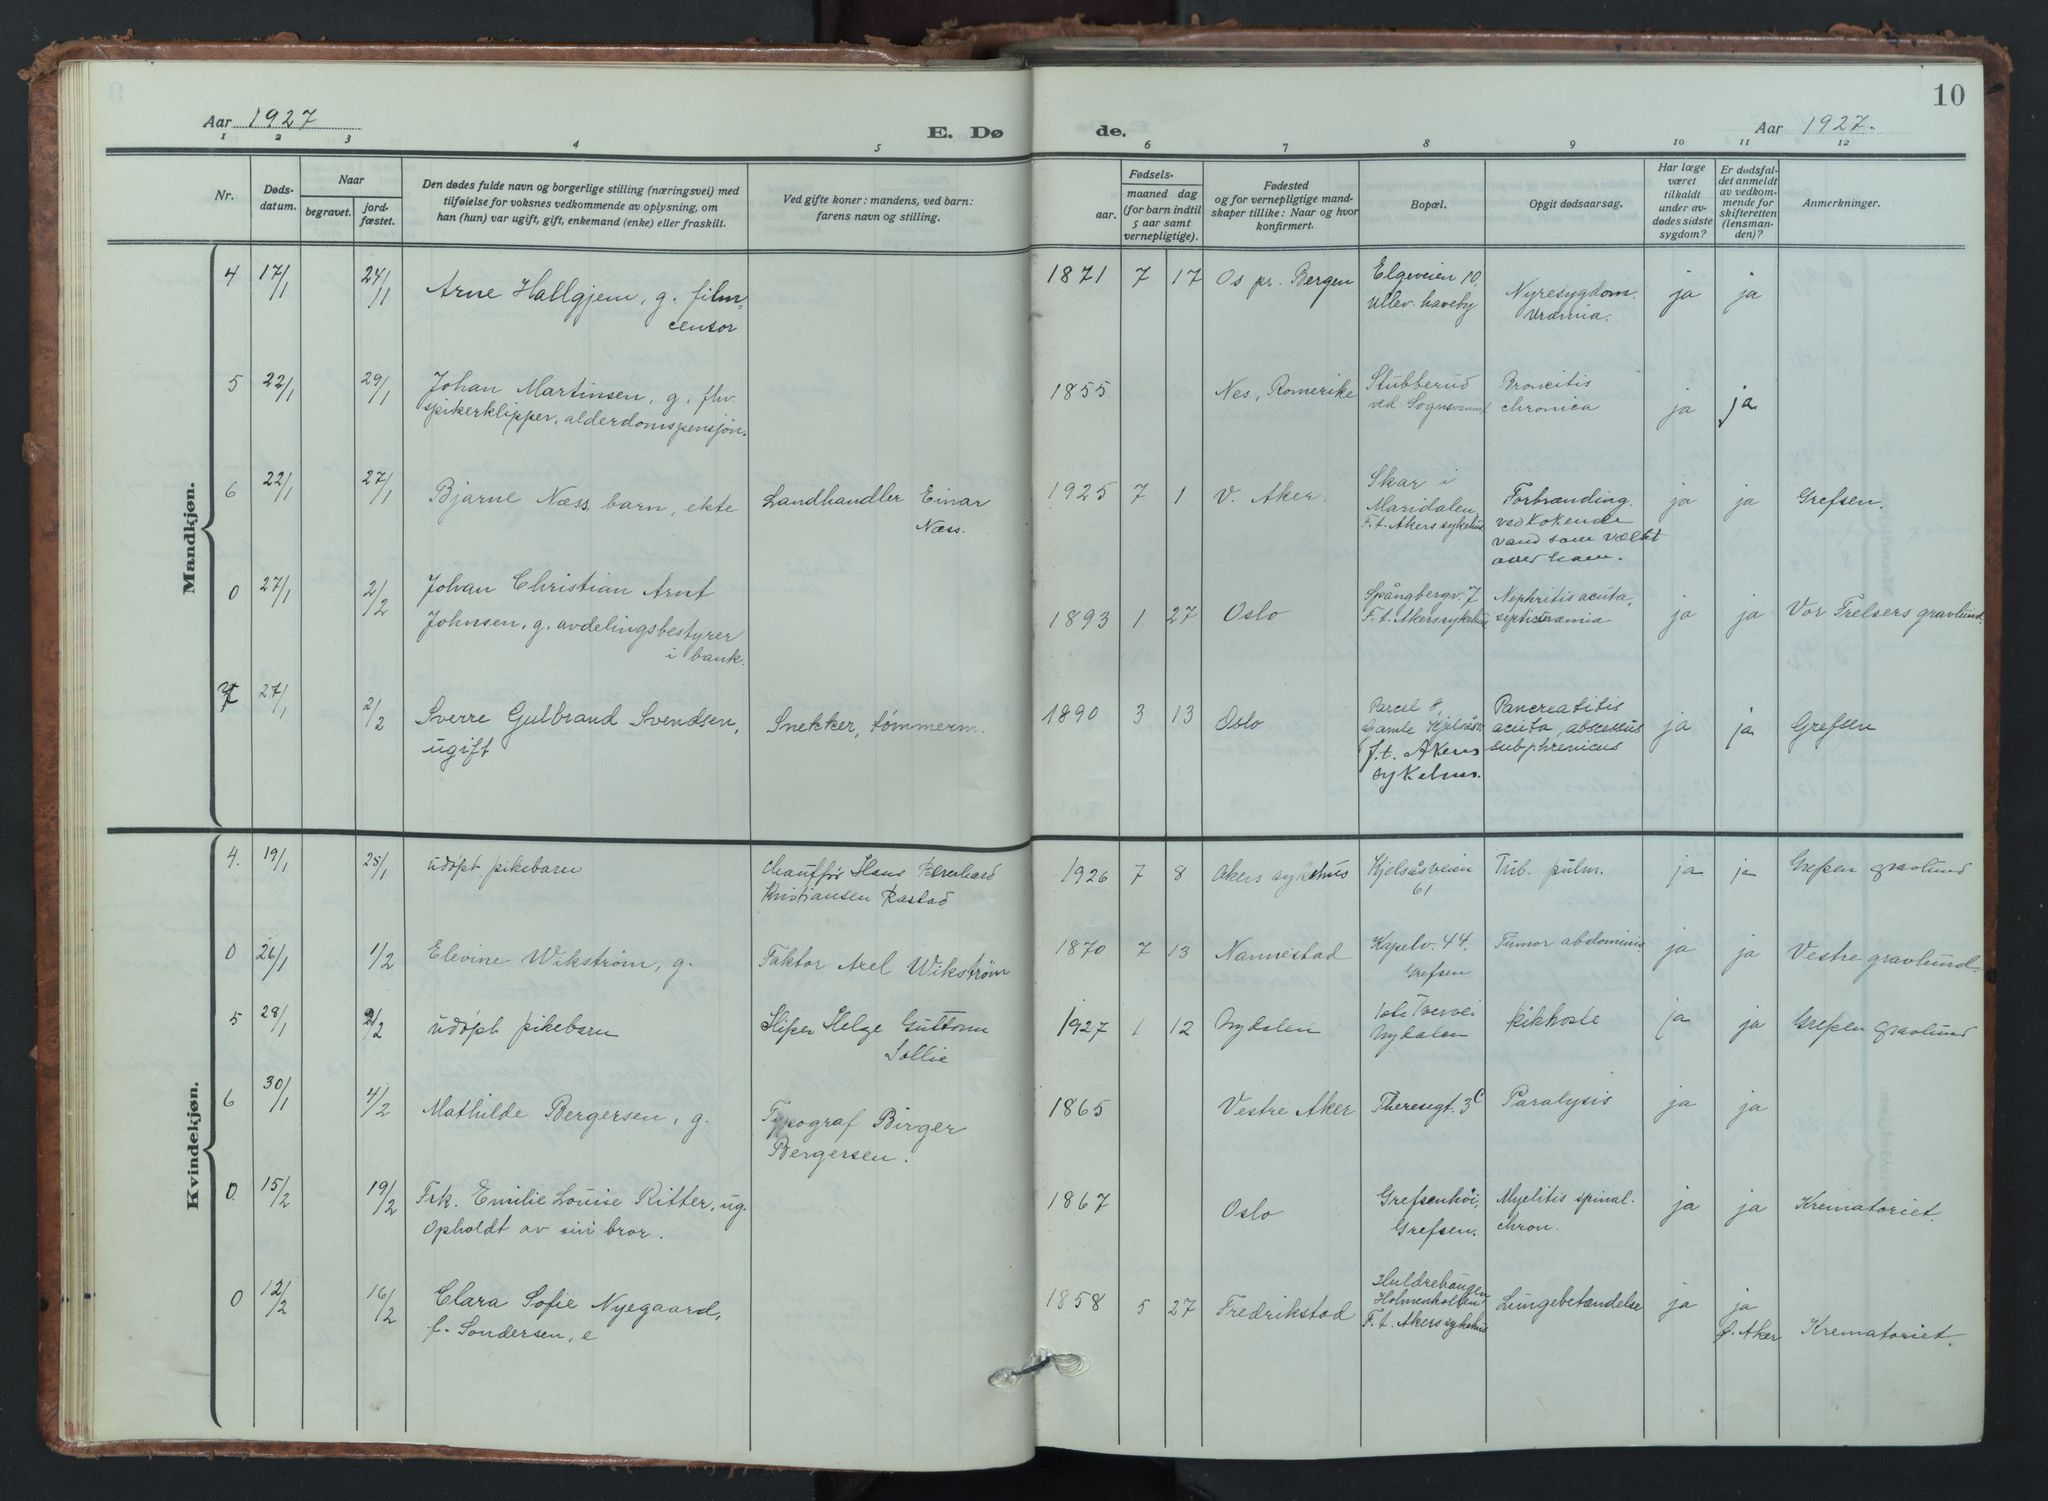 10
Aar 1927
E. Dø
de.
Aar 1927.
1 2 3 4 5 6 7 8 9 10 11 12
Nr.
Døds-
datum.
Naar
begravet.
jord-
fæstet.
Den dødes fulde navn og borgerlige stilling (næringsvei) med
tilføielse for voksnes vedkommende av oplysning, om
han (hun) var ugift, gift, enkemand (enke) eller fraskilt.
Ved gifte koner: mandens, ved barn:
farens navn og stilling.
Fødsels-
aar.
maaned dag
(for barn indtil
5 aar samt
vernepligtige).
Fødested
og for vernepligtige mand-
skaper tillike: Naar og hvor
konfirmert.
Bopæl.
Opgit dødsaarsag.
Har læge
været
tilkaldt
under av-
dødes sidste
sygdom?
Er dødsfal-
det anmeldt
av vedkom-
mende for
skifteretten
(lensman-
den)?
Anmerkninger.
Mandkjøn.
4 17/1 24/11 Arne Hallgjem, g. film-
censor
1871 7 17 Os pr. Bergen
Elgeveien 10,
Ullev. haveby
Nyresygdom.
Uræmia.
ja ja
5 22/1 29/1 Johan Martinsen, g. fhv.
spikerklipper, alderdomspensjon.
1855 Nes, Romerike
Stubberud
ved Sognsvannet
Broncitis
chronica
ja ja
6 22/1 27/1 Bjarne Næss, barn, ekte
Landhandler Einar
Næss.
1925 7 1 V. Aker.
Skar i
Maridalen,
F. t. Akers sykehus
Forbrænding.
ved kokende
vand som væltet
over ham.
ja ja Grefsen.
0 27/1 2/2 Johan Christian Arnt
Johnsen, g. avdelingsbestyrer
i bank.
1893 1 27 Oslo
Spångbergv. 7
F. t. Akers sykehus
Nephritis acuta,
septicæmia
ja ja Vor Frelsers gravlund.
7 27/1 2/2 Sverre Gulbrand Svendsen,
ugift
Snekker, tømmerm.
1890 3 13 Oslo
Parcel 8,
Gamle Kjelsåsv.
f. t. Akers
sykehus.
Pancreatitis
acuta, abscessus
subphrenicus
ja ja Grefsen
Kvindekjøn.
4. 19/1 25/1 udøpt pikebarn
Chauffør Hans Bernhard
Kristiansen Rastad
1926 7 8 Akers sykehus
Kjelsåsveien
61
Tub. pulm.
ja ja Grefsen gravlund
0 26/1 1/2 Elevine Wikstrøm, g.
Faktor Axel Wikstrøm
1870 7 13 Nannestad
Kapelv. 44.
Grefsen
Tumor abdominis
ja ja Vestre gravlund.
5 28/1 2/2 udøpt pikebarn
Sliper Helge Guttorm
Sollie
1927 1 12 Nydalen
Nydalen
kikhoste
ja ja Grefsen gravlund
6 30/1 4/2 Mathilde Bergersen, g.
Typograf Birger
Bergersen.
1865 Vestre Aker
Theresegt. 3c
Paralysis
ja ja
0. 15/2 19/2 Frk. Emilie Louise Ritter, ug.
Opholdt av sin bror.
1867 Oslo
Grefsenhöi,
Grefsen.
Myelitis spinal.
chron.
ja ja Krematoriet.
0 12/2 16/2 Clara Sofie Nyegaard,
f. Sondersen, e
1858 5 27 Fredrikstad
Huldrehaugen
Holmenkollen,
F. t. Akers sykehus
Lungebetændelse
ja ja
f. Aker Krematoriet.